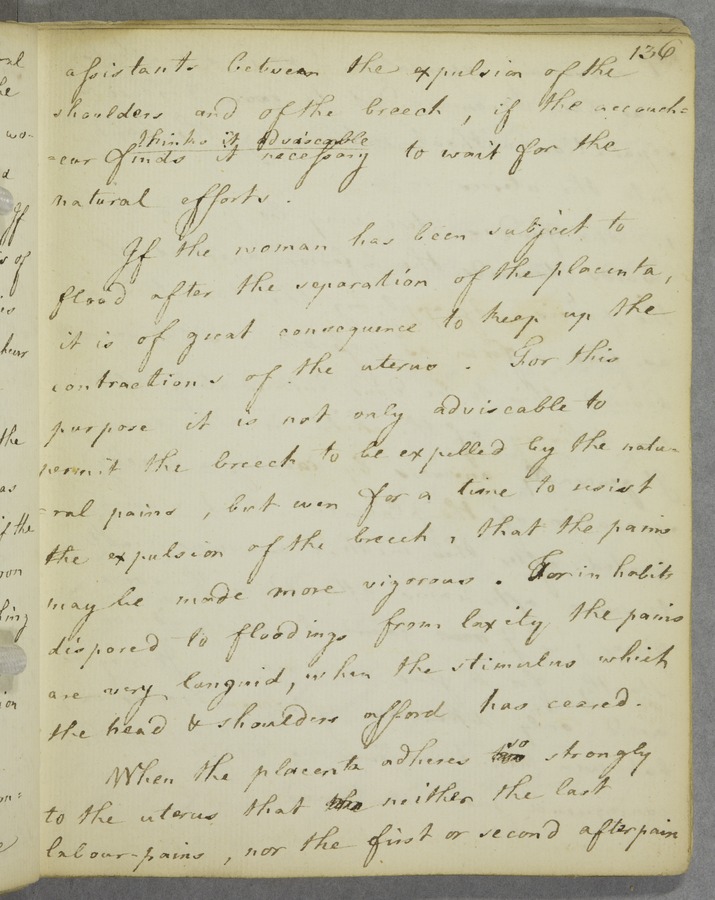 136
assistants between the expulsion of the
shoulders and of the breech, if the accouch=
thinks it adviscable
=eur finds it necessary to wait for the
natural efforts.
If the woman has been subject to
flood after the separation of the placenta,
it is of great consequence to keep up the
contractions of the uterus. For this
purpose it is not only adviscable to
permit the breech to be expelled by the natu-
=ral pains, but even for a time to resist
the expulsion of the breech, that the pains
may be made more vigorous. For in habits
disposed to floodings from laxity the pains
are very languid, when the stimulus which
the head & shoulders afford has ceased.
When the placenta adheres so strongly
to the uterus that neither the last
labour-pains, nor the first or second afterpain